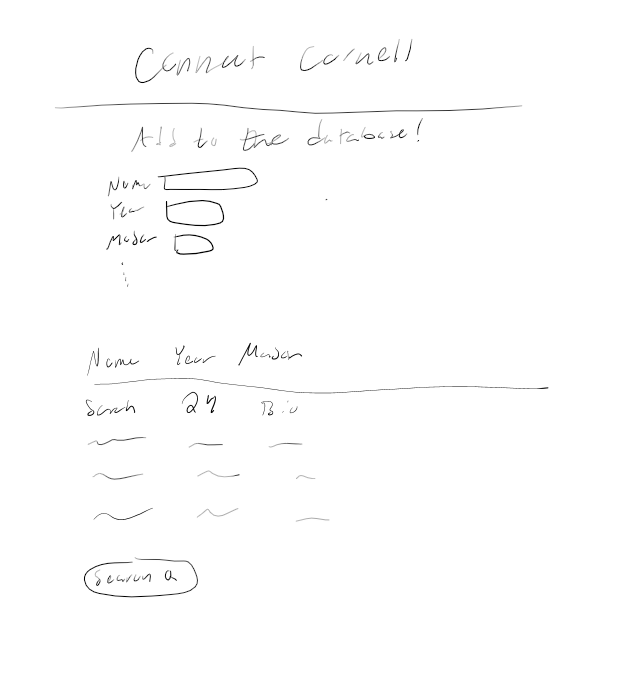 Connect Cornell
Add to the database!
Name
Year
Major
Name Year Major
Sarah 24 Bio
Search